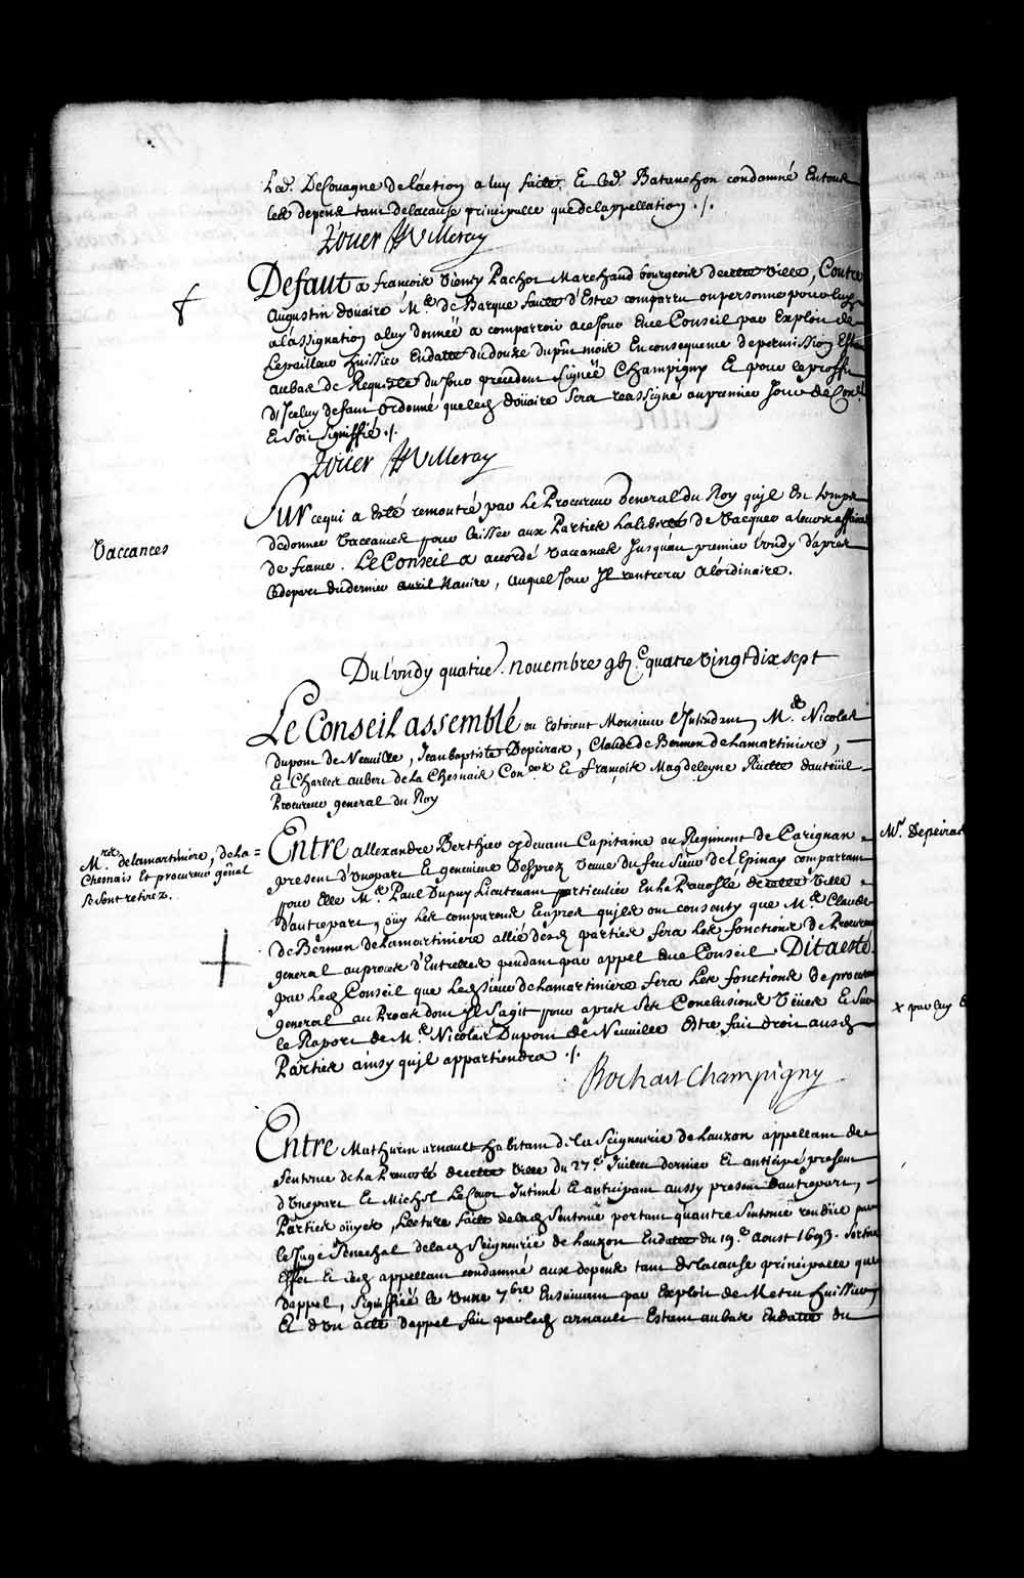 Led. DeSouagne de l'action a luy faite. Et led. Batanchon condamné En tous
les depens tant de la cause principalle que de l'appellation ./.
Rouer De Villeray
Defaut a francois Vienay Pachot Marchand bourgeois de cette Ville, Contre
Augustin doüaire Me. de Barque faute d'Estre comparu ou personne pour luy
a l'assignation a luy donneé a comparroir a ce Jour En ce Conseil par Exploit de
Lepailleur huissier En datte du douze du pnt mois En consequence de permission Estant
au bas de Requeste du Jour precedent signée Champigny Et pour le proffit
d'Iceluy defaut Ordonné que led. doüaire sera reassigné au premier Jour de Conel.
Et soit signiffié ./.
Rouer De Villeray
Vaccances
Sur ce qui a Esté remontré par Le Procureur General du Roy qu'jl Est temps
de donner Vaccances pour laisser aux Parties La liberté de Vacquer a leurs affaires
de france. Le Conseil a accordé Vaccances Jusqu'au premier Lundy d'apres
Le depart du dernier Nauire, auquel Jour Jl rentrera a l'ordinaire.
Du Lundy quatrie. nouembre gbj.c quatre Vingt dix sept
Le Conseil assemblé ou Estoient Monsieur l'Intendant, Me. Nicolas
dupont de Neuuille, Jean baptiste Depeiras, Claude de Bermen de la martiniere,
Et Charles aubert de la Chesnais Coners. Et françois Magdeleyne Ruette dauteüil
Procureur general du Roy
Mrs. de la martiniere, de la
Chesnais Et procureur gñal
se sont retirez.
Entre allexandre Berthier cy deuant Capitaine au Regiment de Carignan
present d'Vne part Et geneuieue Desprez Veuue du feu Sieur de l'Epinay comparant
pour Elle Me. Paul Dupuy Lieutenant particulier En la Preuosté de cette Ville
d'autre part, oüy Les comparans Et apres qu'jls ont consenty que Me. Claude
de Bermen de la martiniere allié desd. parties fera Les fonctions de Procureur
general au procés d'Entrelles pendant par appel En ce Conseil. Dit a esté
par Led. Conseil que Led. sieur de la martiniere fera Les fonctions de procureur
general au Procés dont Jl s'agit pour apres Ses Conclusions Veües Et Sur
le Raport de Me. Nicolas Dupont de Neuuille Estre fait droit ausd.
Parties ainsy qu'jl appartiendra ./.
Bochart Champigny
Entre Mathurin arnault habitant de La Seigneurie de Lauzon appellant de
Sentence de la Preuosté de cette Ville du 27e. Juillet dernier Et anticipé present
d'Vne part Et Michel Le Cour Intimé Et anticipant aussy present d'autre part,
Parties oüyes, Lecture faite de lad. Sentence portant qu'autre Sentence rendüe par
le Juge Senechal de lad. Seigneurie de Lauzon En datte du 19.e Aoust 1693. sortira
Effet Et led. appellant condamné aux depens tant de la cause principalle que
d'appel, signiffiée le Vnze 7bre Ensuiuant par Exploit de Metru huissier,
Et d'vn acte d'appel fait par led. arnault Estant au bas En datte du
Mr. Depeiras
x par luy